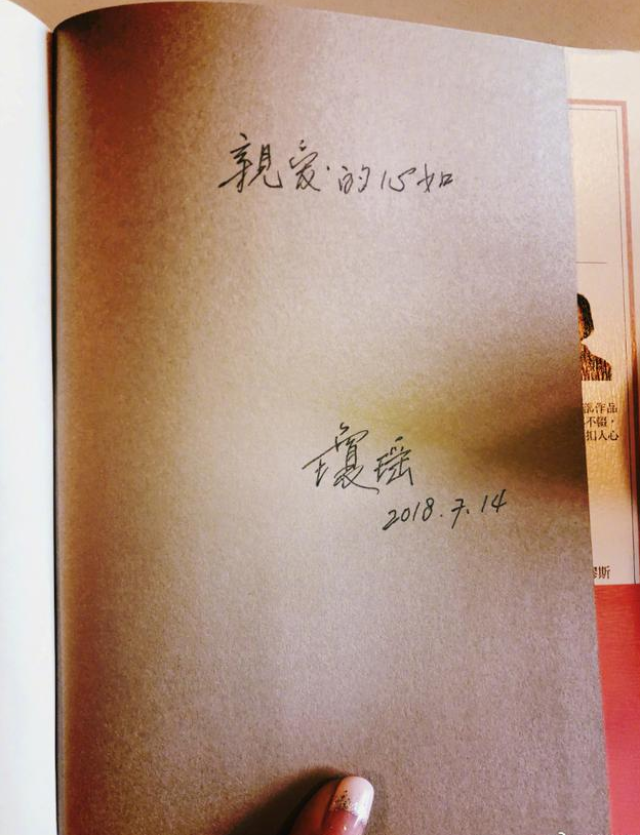 親愛的心如
瓊瑤
2018.7.14
作品
不輟，
扣人心
斯